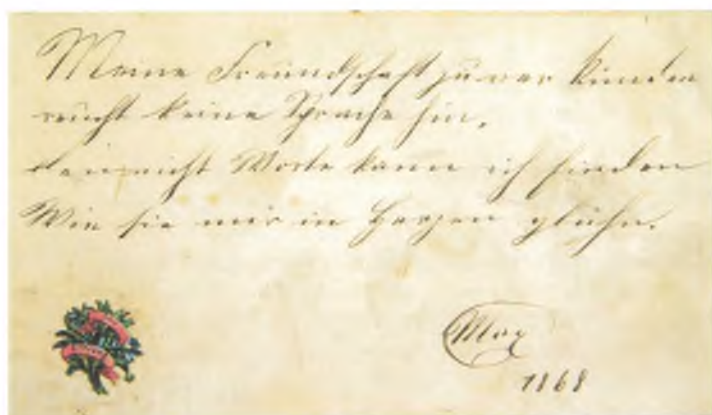 Meine Freundschaft zu ver künden
reicht keine Sprache hin,
nicht Worte kann ich finden
Wie sie mir in Herzen glühn.
Max
1868